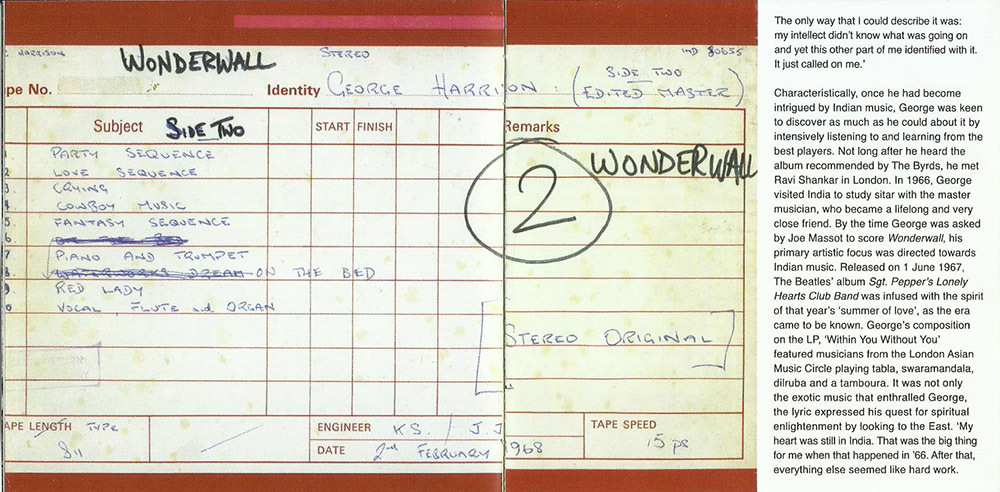 HARRISON
WONDERWALL
STEREO
IND 80655
pe No.
Identity GEORGE HARRISON:
(SIDE TWO
EDITED MASTER)
Subject SIDE TWO
START FINISH
Remarks
1. PARTY SEQUENCE
2 LOVE SEQUENCE
3. CRYING
4 COWBOY MUSIC
5. FANTASY SEQUENCE
6.
7 PIANO AND TRUMPET
8. WATERWORKS DREAM ON THE BED
9 RED LADY
0 VOCAL, FLUTE and ORGAN
2
WONDERWALL
STEREO ORIGINAL
APE LENGTH TYPE
811
ENGINEER KS. / J.J
DATE 2nd FEBRUARY 1968
TAPE SPEED
15 ps
The only way that I could describe it was:
my intellect didn't know what was going on
and yet this other part of me identified with it.
It just called on me.'
Characteristically, once he had become
intrigued by Indian music, George was keen
to discover as much as he could about it by
intensively listening to and learning from the
best players. Not long after he heard the
album recommended by The Byrds, he met
Ravi Shankar in London. In 1966, George
visited India to study sitar with the master
musician, who became a lifelong and very
close friend. By the time George was asked
by Joe Massot to score Wonderwall, his
primary artistic focus was directed towards
Indian music. Released on 1 June 1967,
The Beatles' album Sgt. Pepper's Lonely
Hearts Club Band was infused with the spirit
of that year's 'summer of love', as the era
came to be known. George's composition
on the LP, 'Within You Without You'
featured musicians from the London Asian
Music Circle playing tabla, swaramandala,
dilruba and a tamboura. It was not only
the exotic music that enthralled George,
the lyric expressed his quest for spiritual
enlightenment by looking to the East. 'My
heart was still in India. That was the big thing
for me when that happened in '66. After that,
everything else seemed like hard work.